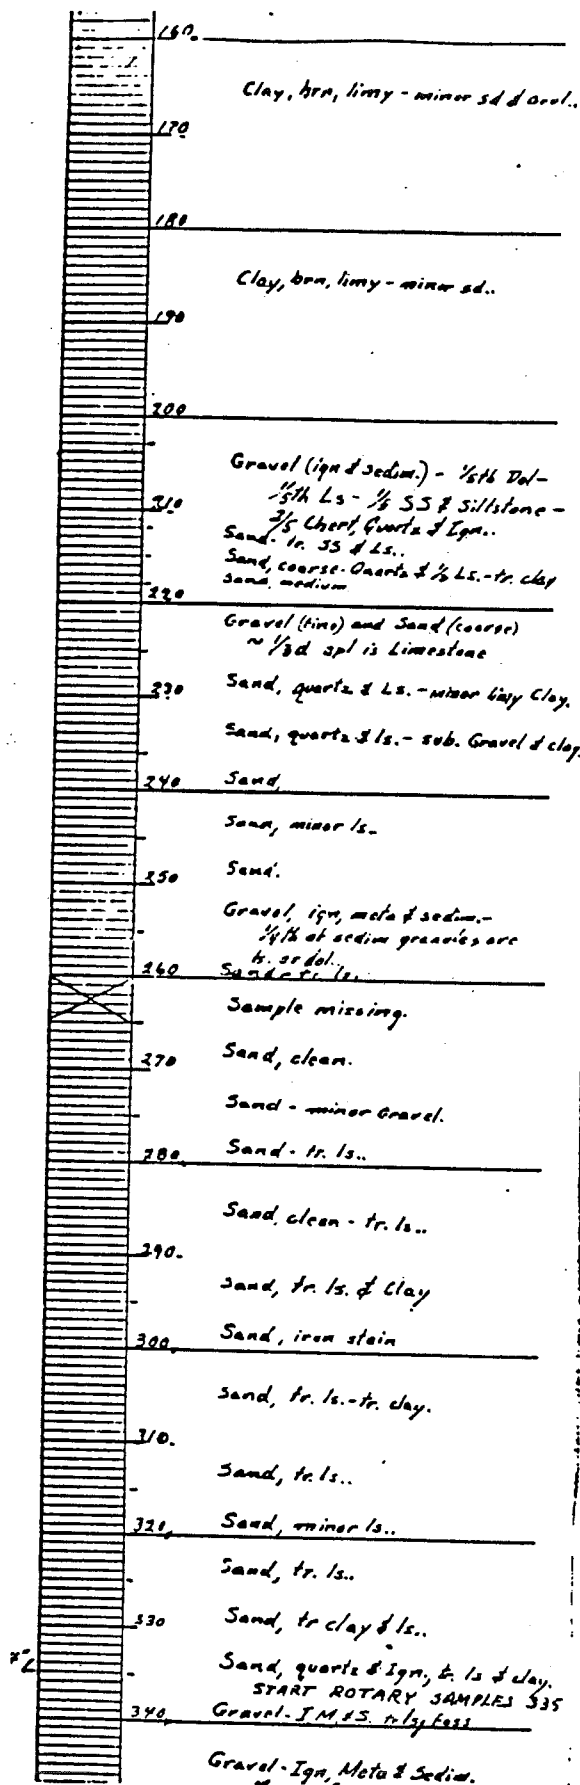 160.
Clay, brn, limy - minor sd & Grvl..
170
180
Clay, brn, limy - minor sd..
190
200
Gravel (ign & sedim.) - 1/5th Dol-
1/5th Ls - 1/5 SS & Siltstone -
310
2/5 Chert, Quartz & Ign..
Sand- tr. SS & Ls..
Sand, coarse- Quartz & 1/3 Ls.- tr. clay
Sand, medium
220
Gravel (fine) and Sand (coarse)
~ 1/3d spl is Limestone
230
Sand, quartz & Ls. - minor limy Clay.
Sand, quartz & ls. - sub. Gravel & clay.
240
Sand,
Sand, minor ls.
250
Sand.
Gravel, ign, meta & sedim.-
1/4th of sedim are
ls. or dol..
260
Sand - tr. ls.
Sample missing.
270
Sand, clean.
Sand - minor Gravel.
280
Sand - tr. ls..
Sand, clean - tr. ls..
290.
Sand, tr. ls. & Clay
300.
Sand, iron stain
Sand, tr. ls.- tr. clay.
310.
Sand, tr. ls..
320.
Sand, minor ls..
Sand, tr. ls..
330
Sand, tr clay & ls..
Sand, quartz & Ign., tr. ls & clay.
START ROTARY SAMPLES 335
340.
Gravel - I.M.&S. foss
Gravel - Ign, Meta & Sedim.